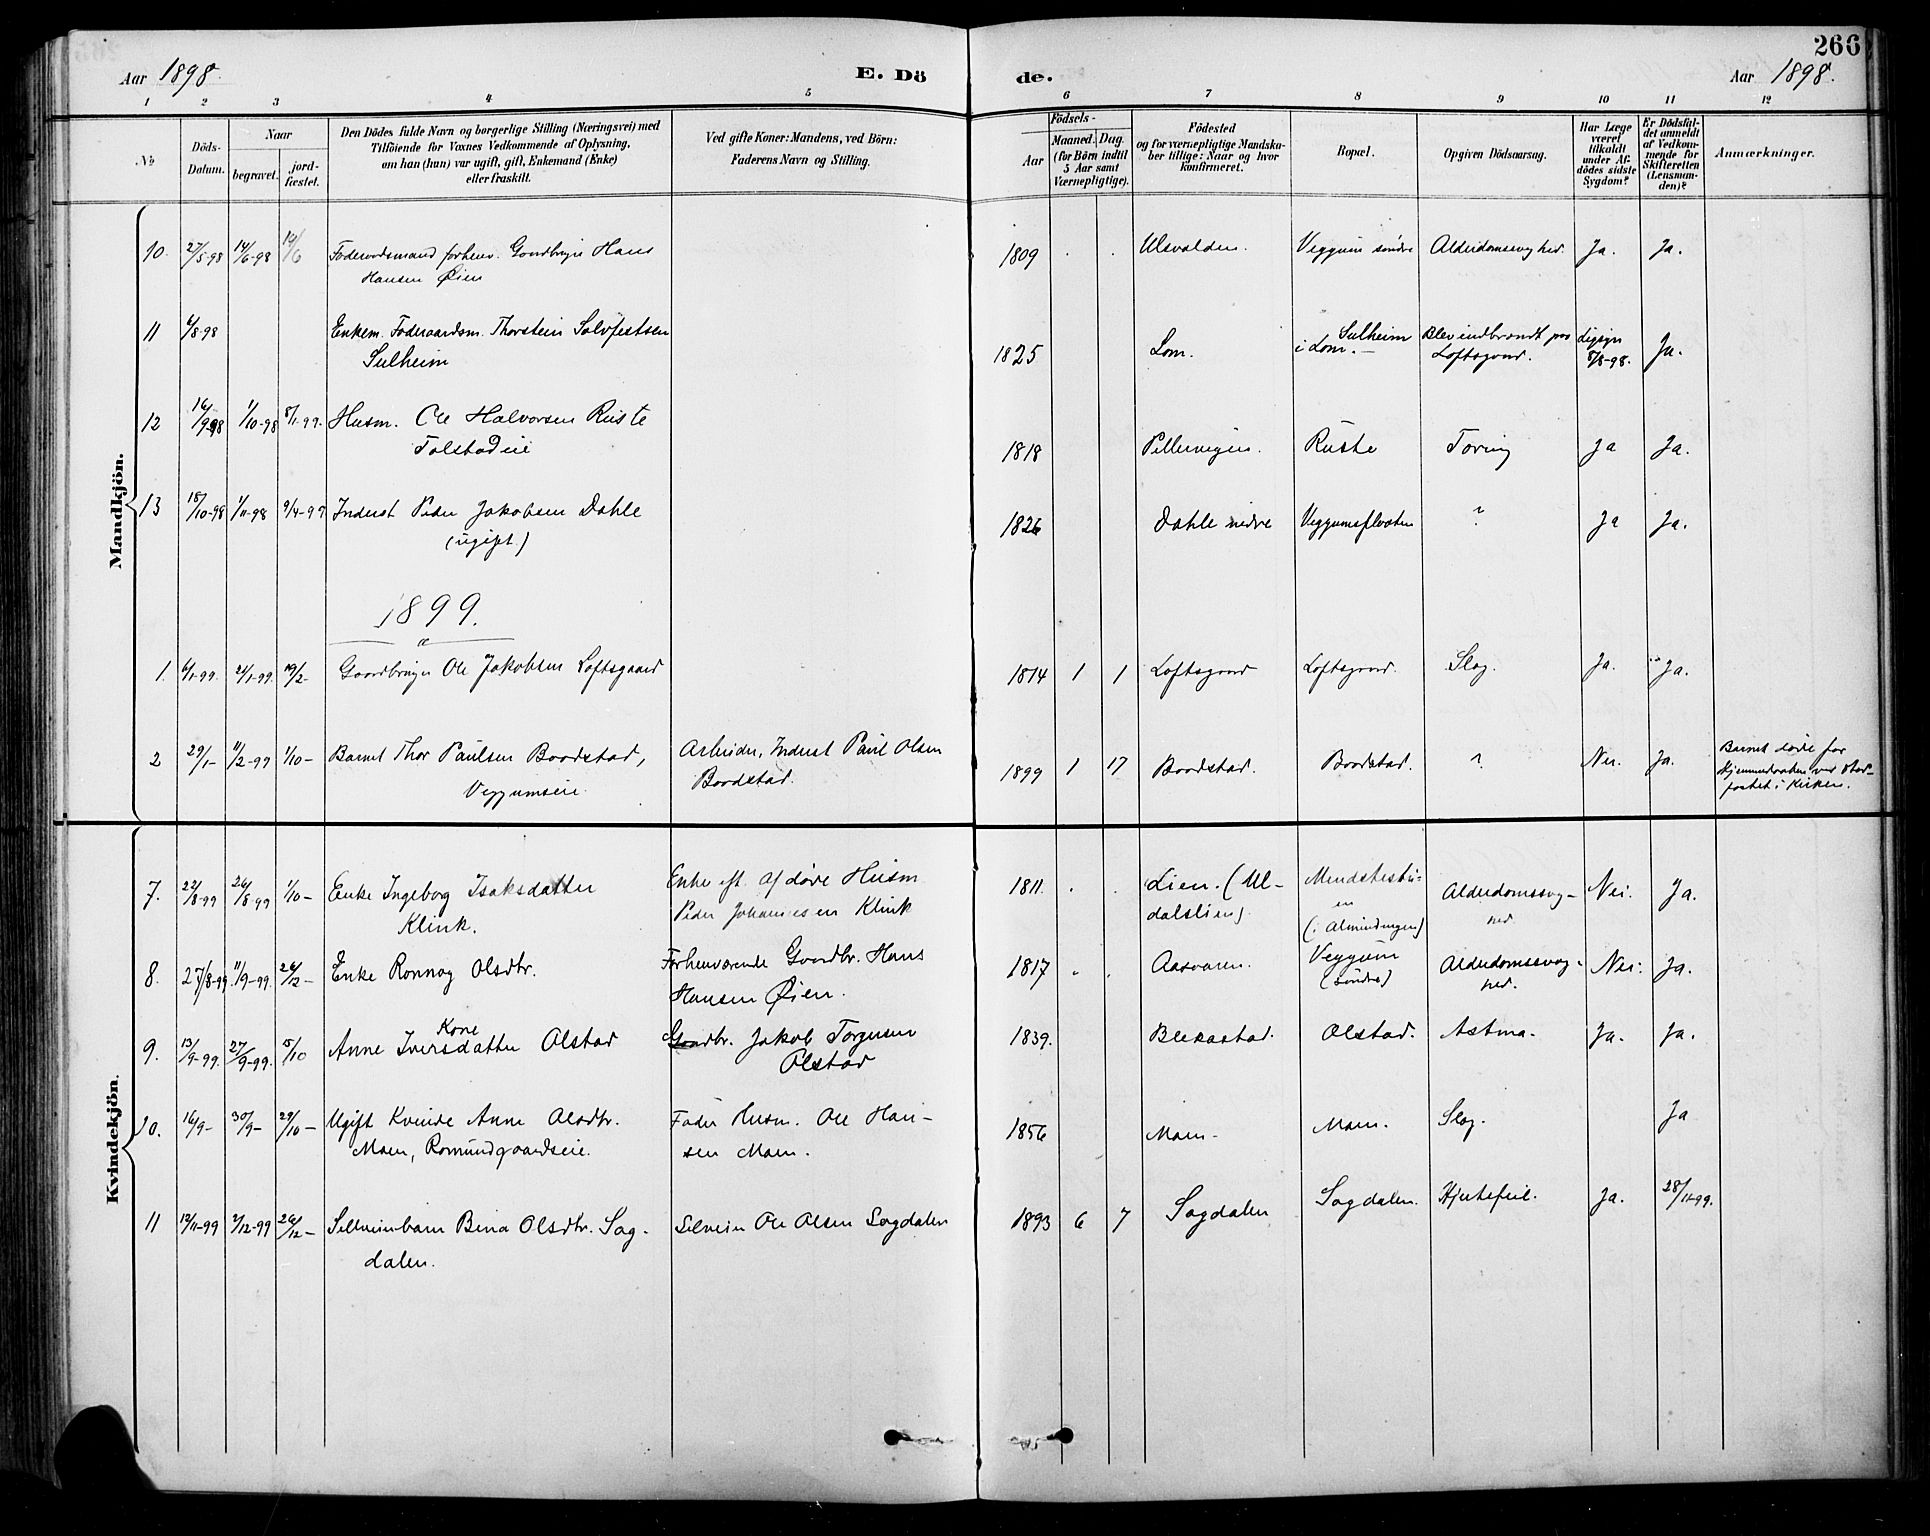 266
Aar 1898.
E. Dö
de.
Aar 1898.
1 2 3 4 5 6 7 8 9 10 11 12
No
Döds-
Datum.
Naar
begravet.
jord-
fæstet.
Den Dödes fulde Navn og borgerlige Stilling (Næringsvei) med
Tilföiende for Voxnes Vedkommende af Oplysning,
om han (hun) var ugift, gift, Enkemand (Enke)
eller fraskilt.
Ved gifte Koner: Mandens, ved Börn:
Faderens Navn og Stilling.
Födsels-
Aar
Maaned. Dag.
(for Börn indtil
5 Aar samt
Værnepligtige).
Födested
og for værnepligtige Mandska-
ber tillige: Naar og hvor
konfirmeret.
Bopæl.
Opgiven Dödsaarsag.
Har Læge
været
tilkaldt
under Af-
dödes sidste
Sygdom?
Er Dödsfal-
det anmeldt
af Vedkom-
mende for
Skifteretten
(Lensman-
den)?
Anmærkninger.
Mandkjön.
10. 27/5-98 14/6-98 19/6 Föderaadsmand forhenv. Gaardbruger Hans
Hansen Øien
1809 Ulsvolden. Veggum söndre Alderdomssvaghed. Ja. Ja.
11 6/8-98 Enkem. Föderaadsm. Thorstein Solvfestsen
Sulheim
1825 Lom. Sulheim
i Lom. Blev indbrændt paa
Loftsgaard. Ligsyn
8/8-98. Ja.
12 16/9-98 1/10-98 8/1-99. Husm. Ole Halvorsen Ruste
Tolstadeie
1818 Pillarvigen. Ruste Tæring Ja Ja.
13 18/10-98 1/11-98 9/4-99 Inderst Peder Jakobsen Dahle
(ugift.)
1826 Dahle nedre Veggumsfladen ? Ja Ja.
1899.
1. 6/1-99. 21/1-99. 19/2- Gaardbruger Ole Jakobsen Loftsgaard
1814 1 1 Loftsgaard Loftsgaard. Slag. Ja. Ja.
2 29/1- 11/2-99 1/10- Barnet Thor Paulsen Baadstad,
Veggumseie.
Arbeider, Inderst Paul Olsen
Baadstad.
1899 1 17 Baadstad. Baadstad. ? Nei. Ja.
Barnet döde før
Hjemmedaaben var stad-
fæstet i Kirken.
Kvindekjön.
7. 22/8-99 26/8-99 1/10- Enke Ingebog Isaksdatter
Klink.
Enke eft. afdöde Husm
Peder Johannesen Klink
1811. Lien. (Ul-
dalslien).
Mendstestu-
en
(i Almindingen)
Alderdomssvag-
hed. Nei. Ja.
8. 27/8-99 11/9-99. 26/12- Enke Ronnog Olsdtr.
Forhenværende Gaardbr. Hans
Hansen Øien.
1817 Aasvaren. Veggum
(söndre) Alderdomssvag-
hed. Nei. Ja.
9. 13/9-99. 27/9-99. 15/10 Kone
Anne Iversdatter Olstad
Gaardbr. Jakob Torgersen
Olstad
1839. Blekastad. Olstad. Astma. Ja. Ja.
10. 16/9- 30/9- 29/10- Ugift Kvinde Anne Olsdtr.
Moen, Romundgaardseie.
Fader Husm. Ole Han-
sen Moen.
1856 Moen. Moen. Slag. Ja
11 19/11-99 2/12-99 26/12- Selveierbarn Bina Olsdtr. Sag-
dalen.
Selveier Ole Olsen Sagdalen
1893 6 7 Sagdalen Sagdalen. Hjertefeil. Ja. 28/11-99.